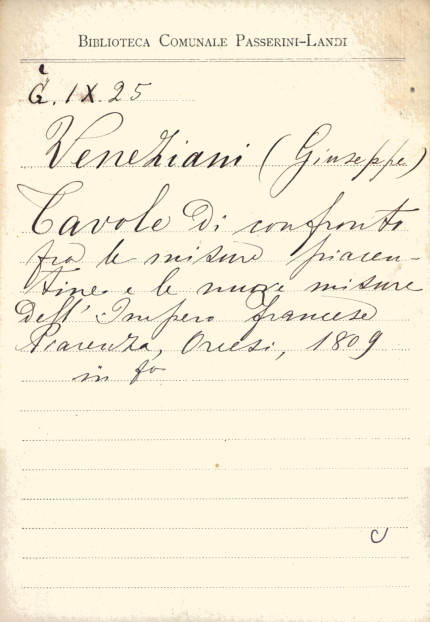 BIBLIOTECA COMUNALE PASSERINI-LANDI
G. IX. 25
Veneziani (Giuseppe)
Tavole di confronto
fra le misure piacen-
tine e le nuove misure
dell'Impero francese
Piacenza, Orcesi, 1809
in fº
C